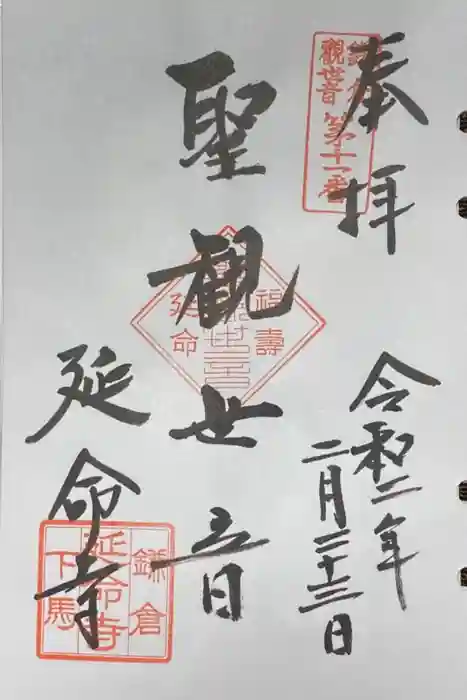 奉拝
令和二年
二月二十三日
鎌倉
觀世音
第十一番
聖観世音
福壽
延命
延命寺
鎌倉
延命寺
下馬